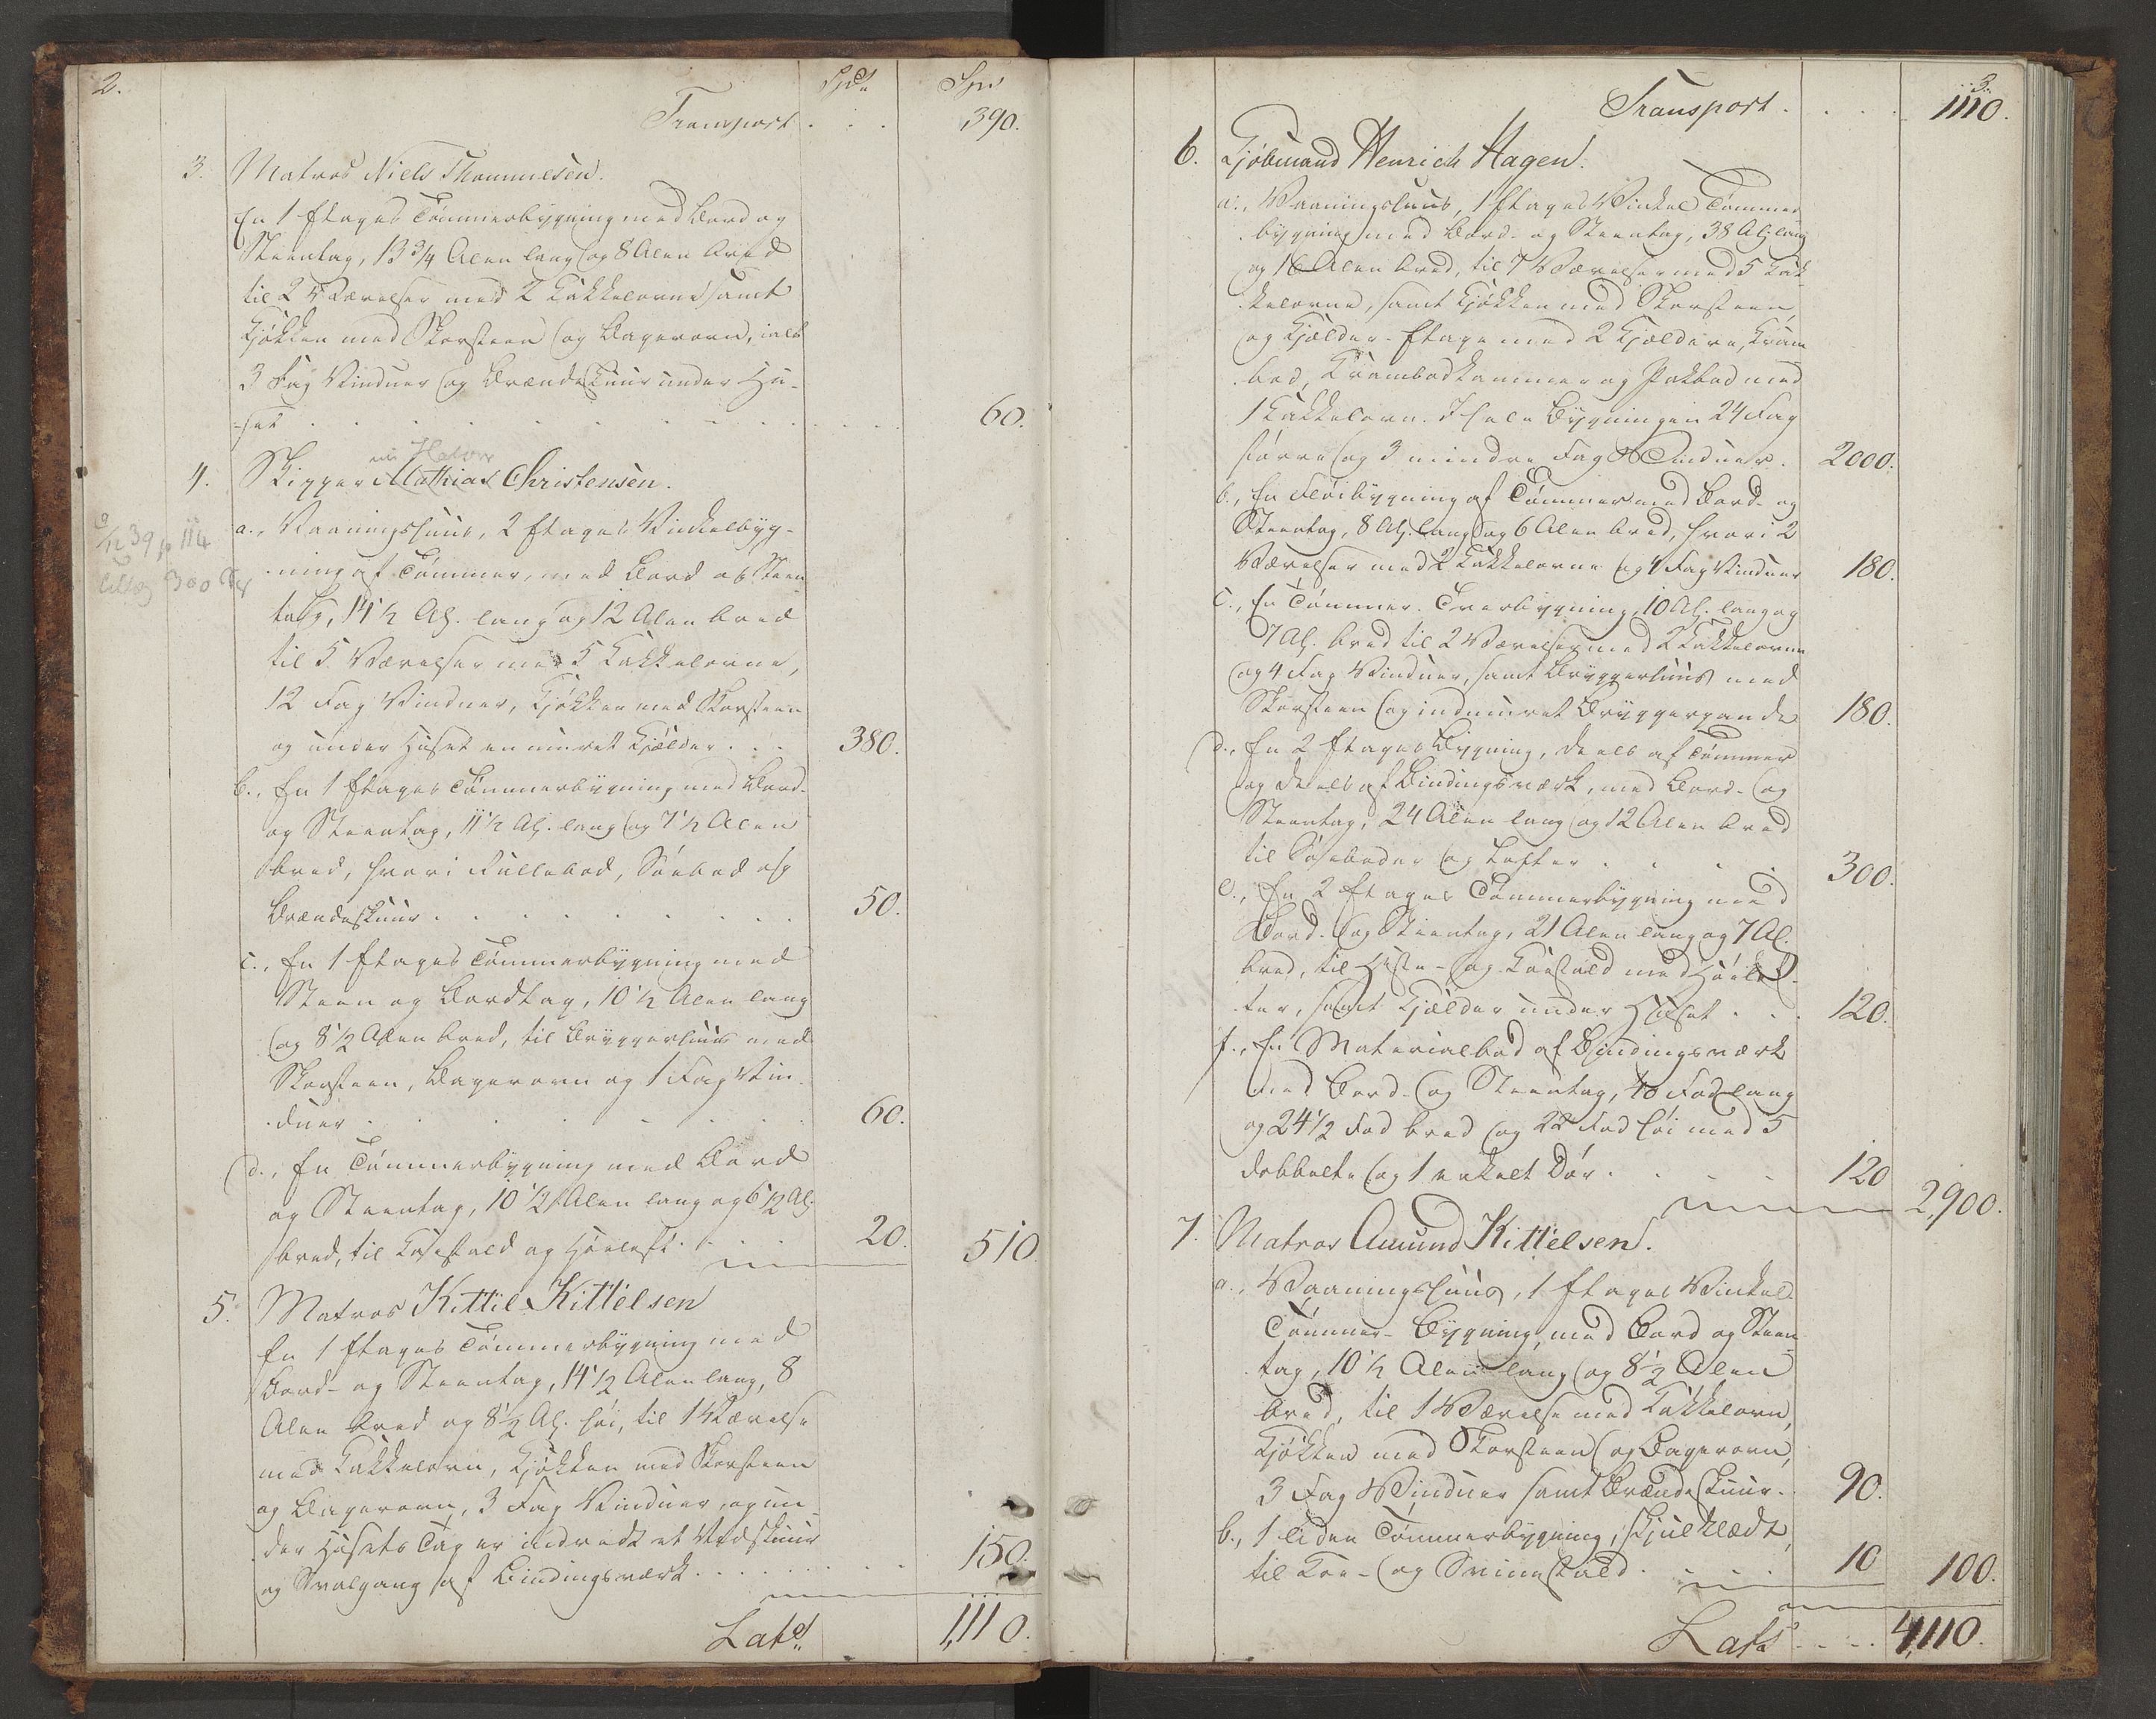 2.
Spd. Spd.
Transport . . . 390.
3. Matros Niels Thommesen.
En 1 Etages Tømmerbygning med Bord og
Steentag, 13 3/4 Alen lang og 8 Alen bred
til 2 Værelser med 2 Kakkelovne samt
Kjøkken med Skorsteen og Bagerovn, ialt
3 Fag Vinduer og Brændeskuur under Hu-
set . . . 60.
nu Halvor
4. Skipper Mathias Christensen.
9/12 39 p 114
tillæg 300 Spd
a., Vaaningshuus, 2 Etages Vinkelbyg-
ning af Tømmer, med Bord og Steen
tag, 14 1/2 Al. lang og 12 Alen bred
til 5 Værelser med 5 Kakkelovne,
12 Fag Vinduer, Kjøkken med Skorsteen
og under Huset en muret Kjelder . . . 380.
b., En 1 Etages Tømmerbygning med Bord-
og Steentag, 11 1/2 Al. lang og 7 1/2 Alen
bred, hvori Rullebod, Søebod og
Brændeskuur . . . 50.
c., En 1 Etages Tømmerbygning med
Steen og Bordtag, 10 1/2 Alen lang
og 8 1/2 Alen bred, til Bryggerhuus med
Skorsteen, Bagerovn og 1 Fag Vin-
duer . . . 60.
d., En Tømmerbygning med Bord
og Steentag, 10 1/2 Alen lang og 6 1/2 Al.
bred, til Koestald og Høeloft . . . 20. 510
5. Matros Kittil Kittelsen
En 1 Etages Tømmerbygning med
Bord- og Steentag, 14 1/2 Alen lang, 8
Alen bred og 8 1/2 Al. høi, til 1 Værelse
med Kakkelovn, Kjøkken med Skorsteen
og Bagerovn, 3 Fag Vinduer, og un-
der Husets Tag er indredt et Vedskuur
og Svalgang af Bindingsværk . . . 150.
Lats 1,110.
3.
Transport . . . 1110.
6. Kjøbmand Henrich Hagen.
a., Vaaningshuus, 1 Etages Vinkel Tømmer
bygning med Bord- og Steentag, 38 Al. lang
og 16 Alen bred, til 7 Værelser med 5 Kak-
kelovne, samt Kjøkken med Skorsteen,
og Kjelder-Etage med 2 Kjeldere, Kram
bod, Krambodkammer og Pakbod med
1 Kakkelovn. I hele Bygningen 24 Fag
større og 3 mindre Fag Vinduer. 2000.
b., En Fløibygning af Tømmer med Bord- og
Steentag, 8 Al. lang og 6 Alen bred, hvori 2
Værelser med 2 Kakkelovne og 4 Fag Vinduer 180.
c., En Tømmer-Tverbygning, 10 Al. lang og
7 Al. bred til 2 Værelser med 2 Kakkelovne
og 4 Fag Vinduer, samt Bryggerhuus med
Skorsteen og indmuret Bryggerpande 180.
d., En 2 Etages Bygning, deels af Tømmer
og deels af Bindingsværk, med Bord- og
Steentag, 24 Alen lang og 12 Alen bred
til Søeboder og Lofter . . . 300.
e., En 2 Etages Tømmerbygning med
Bord- og Steentag, 21 Alen lang og 7 Al.
bred, til Heste- og Koestald med Høelof-
ter, samt Kjelder under Huset . . . 120.
f., En Materialbod af Bindingsværk
med Bord- og Steentag, 40 Fod lang
og 24 1/2 Fod bred og 22 Fod høi med 5
dobbelte og 1 enkelt Dør . . . 120 2,900.
7. Matros Amund Kittelsen.
a., Vaaningshuus, 1 Etages Vinkel
Tømmer-Bygning, med Bord og Steen
tag, 10 1/2 Alen lang og 8 1/2 Alen
bred, til 1 Værelse med Kakkelovn,
Kjøkken med Skorsteen og Bagerovn,
3 Fag Vinduer samt Brændeskuur. 90.
b., 1 liden Tømmerbygning, skjulklædt,
til Koe- og Svinestald . . . 10 100.
Lats . . . 4,110.